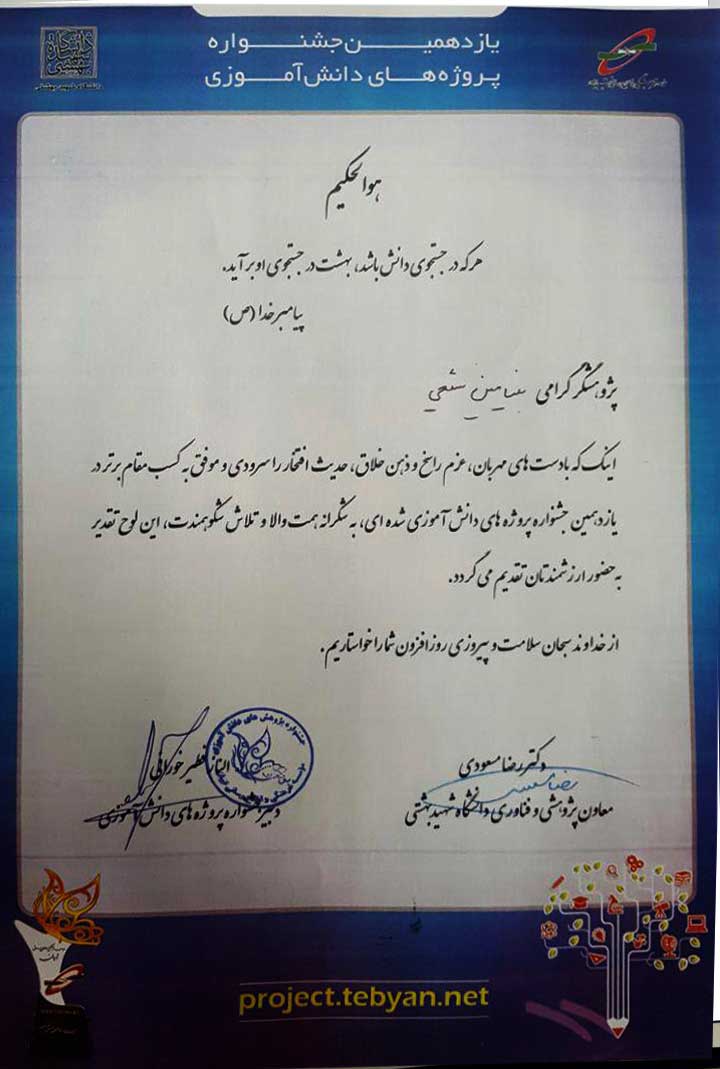 یازدهمین جشنواره
پروژه‌های دانش‌آموزی
دانشگاه شهید بهشتی
هوالحکیم
هرکه در جستجوی دانش باشد، بهشت در جستجوی او برآید.
پیامبر خدا (ص)
پژوهشگر گرامی بنیامین شعی
اینک که با دست های مهربان، عزم راسخ و ذهن خلاق، حدیث افتخار را سرودی و موفق به کسب مقام برتر در
یازدهمین جشنواره پروژه های دانش آموزی شده ای، به شکرانه همت والا و تلاش شکوهمندت، این لوح تقدیر
به حضور ارزشمندتان تقدیم می گردد.
از خداوند سبحان سلامت و پیروزی روزافزون شما را خواستاریم.
دکتر رضا مسعودی
معاون پژوهشی و فناوری دانشگاه شهید بهشتی
دبیر جشنواره پروژه های دانش آموزی
جشنواره پژوهش های دانش آموزی
project.tebyan.net